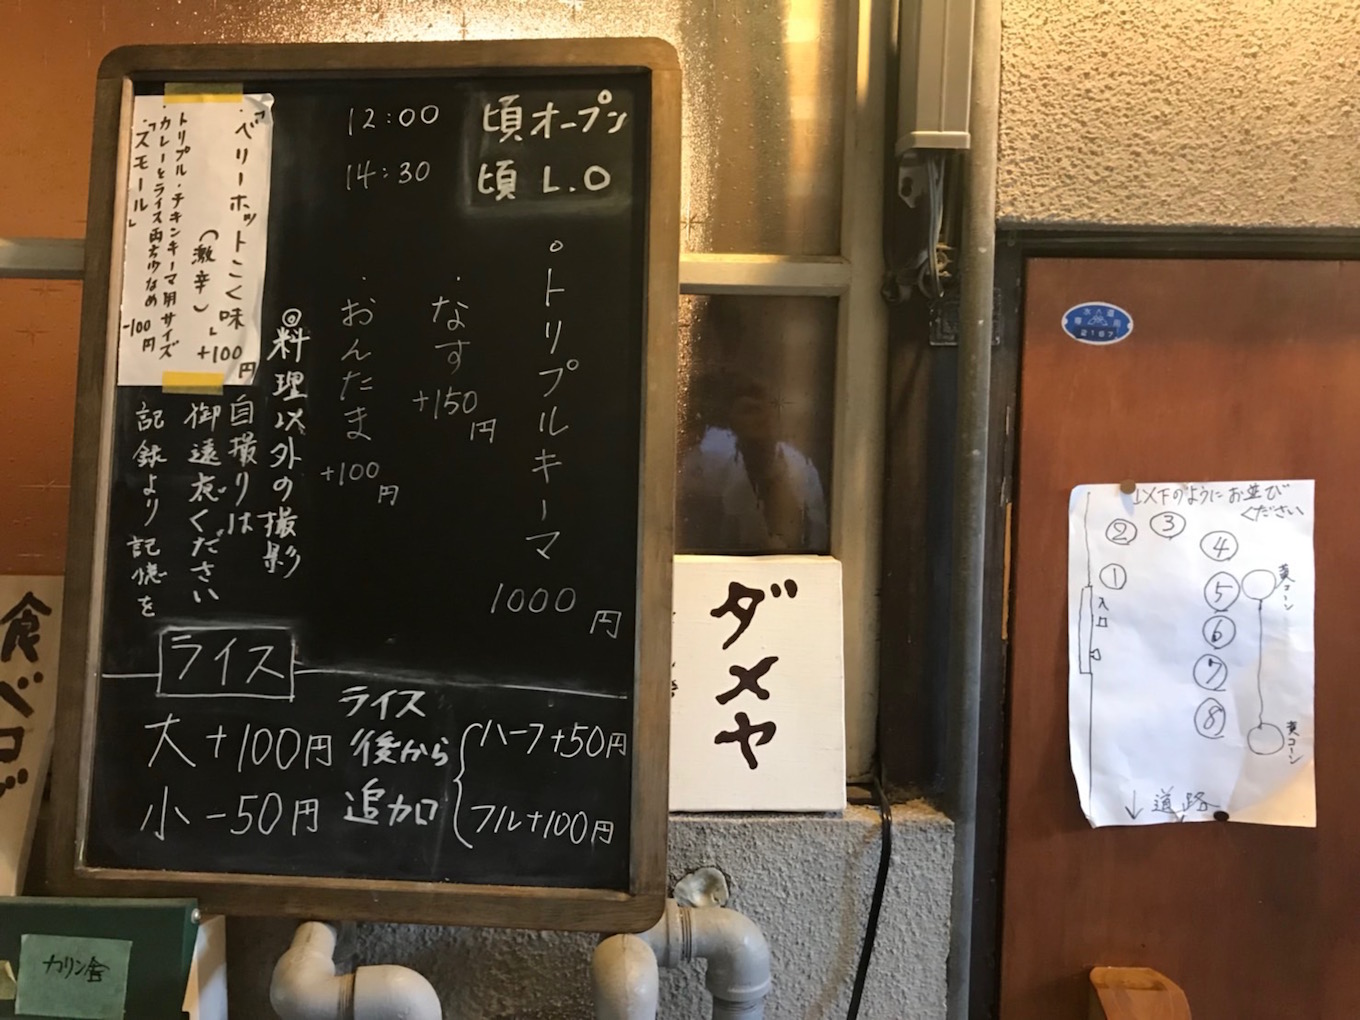 12:00 頃オープン
14:30 頃 L.O
。トリプルキーマ 1000円
・なす +150円
・おんたま +100円
◎料理以外の撮影
自撮りは
御遠慮ください
記録より記憶を
・「ベリーホットこく味」+100円
(激辛)
トリプル・チキンキーマ用サイズ
・カレーとライス両方少なめ -100円
「スモール」
ライス
大+100円
小-50円
ライス
後から
追加
ハーフ+50円
フル+100円
ダメヤ
食べログ
カリン舎
水道
2187
以下のようにお並び
ください
① ② ③ ④ ⑤ ⑥ ⑦ ⑧
入口
黄コーン
黄コーン
↓道路